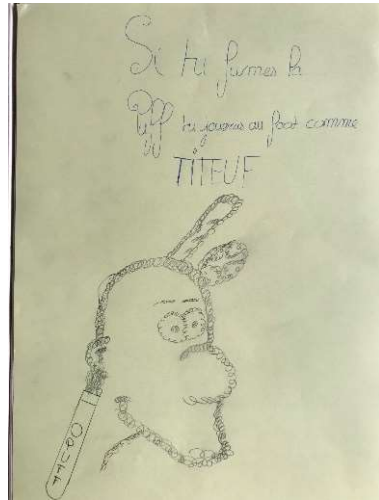 Si tu fumes la
Puff tu joueras au foot comme
TITEUF
PUFF